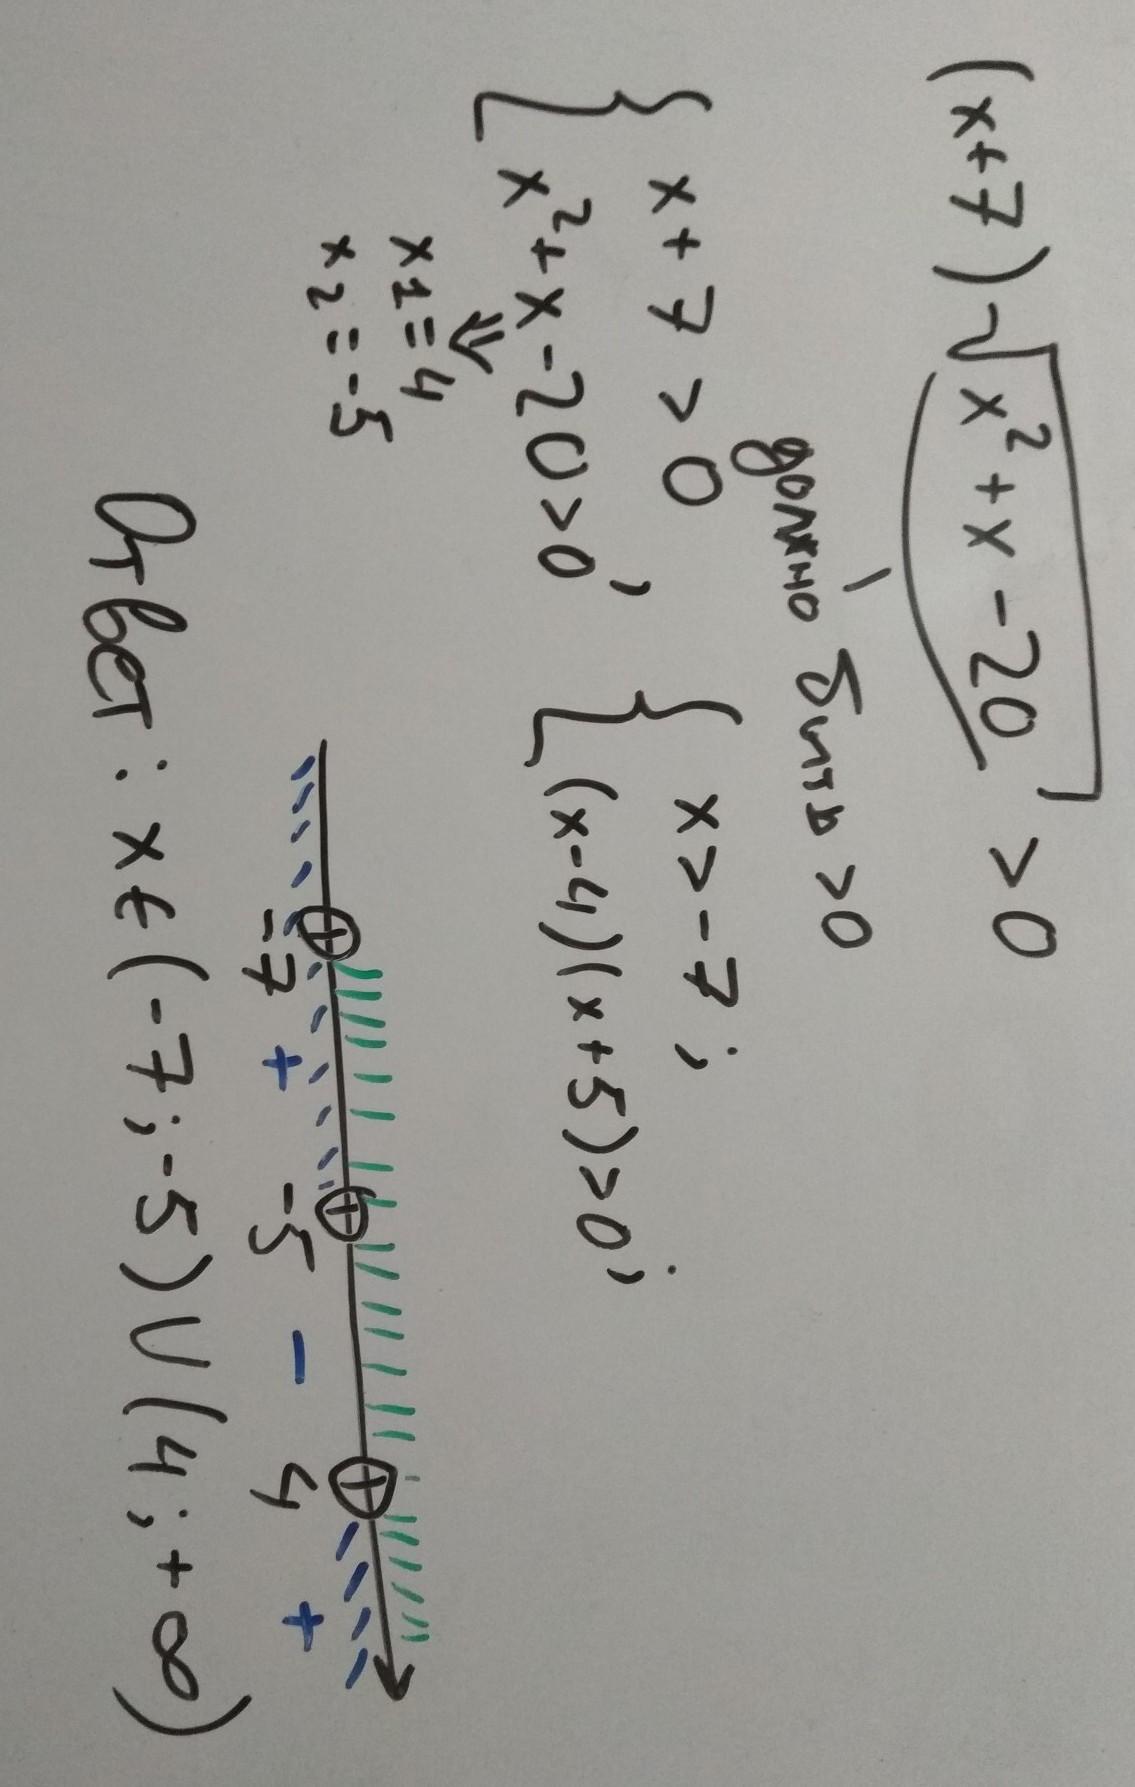 (x+7)√x²+x-20 > 0
должно быть >0
{ x+7 > 0
x²+x-20>0,
⇓
x1=4
x2=-5
{ x>-7;
(x-4)(x+5)>0;
-7 + -5 - 4 +
Ответ: x∈(-7;-5)∪(4;+∞)